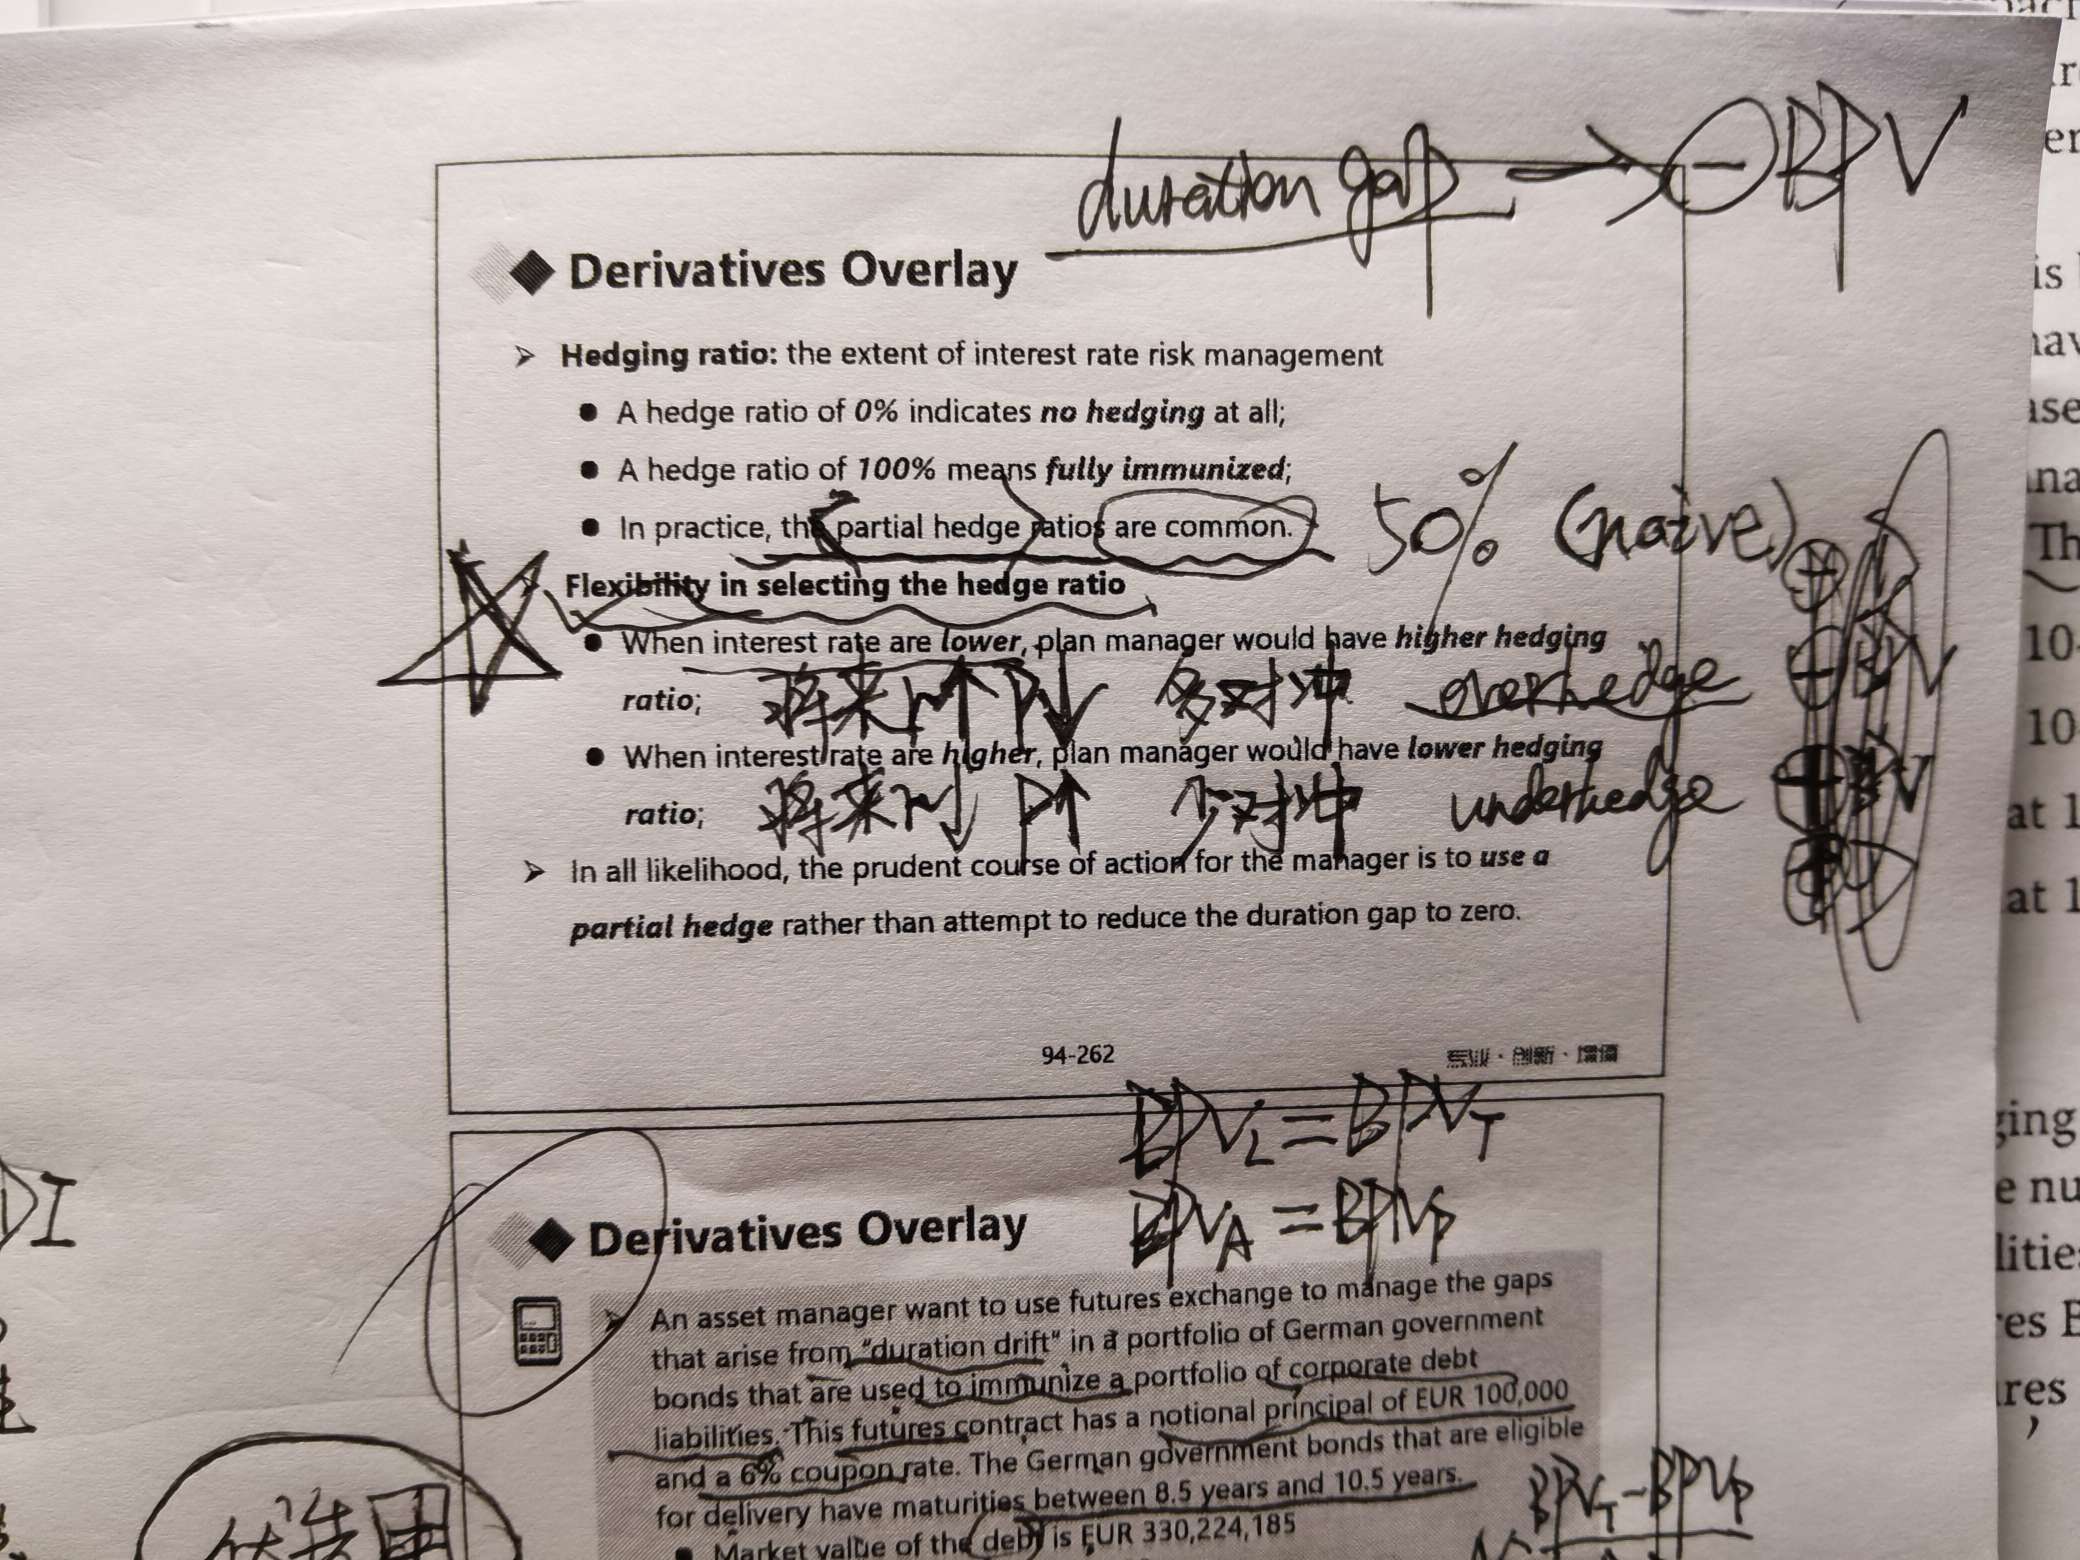 duration gap → ⊖BPV
Derivatives Overlay
Hedging ratio: the extent of interest rate risk management
A hedge ratio of 0% indicates no hedging at all;
A hedge ratio of 100% means fully immunized;
In practice, the partial hedge ratios are common. 50% (naive)
Flexibility in selecting the hedge ratio
When interest rate are lower, plan manager would have higher hedging
ratio; 将来 r↑ P↓ 多对冲 overhedge
When interest rate are higher, plan manager would have lower hedging
ratio; 将来 r↓ P↑ 少对冲 underhedge
In all likelihood, the prudent course of action for the manager is to use a
partial hedge rather than attempt to reduce the duration gap to zero.
94-262
BPV_L = BPV_T
BPV_A = BPV_P
Derivatives Overlay
An asset manager want to use futures exchange to manage the gaps
that arise from "duration drift" in a portfolio of German government
bonds that are used to immunize a portfolio of corporate debt
liabilities. This futures contract has a notional principal of EUR 100,000
and a 6% coupon rate. The German government bonds that are eligible
for delivery have maturities between 8.5 years and 10.5 years.
Market value of the debt is EUR 330,224,185
BPV_T - BPV_P
DI
is
ase
Th
10-
10-
at 1
at 1
ging
e nu
litie
es B
res